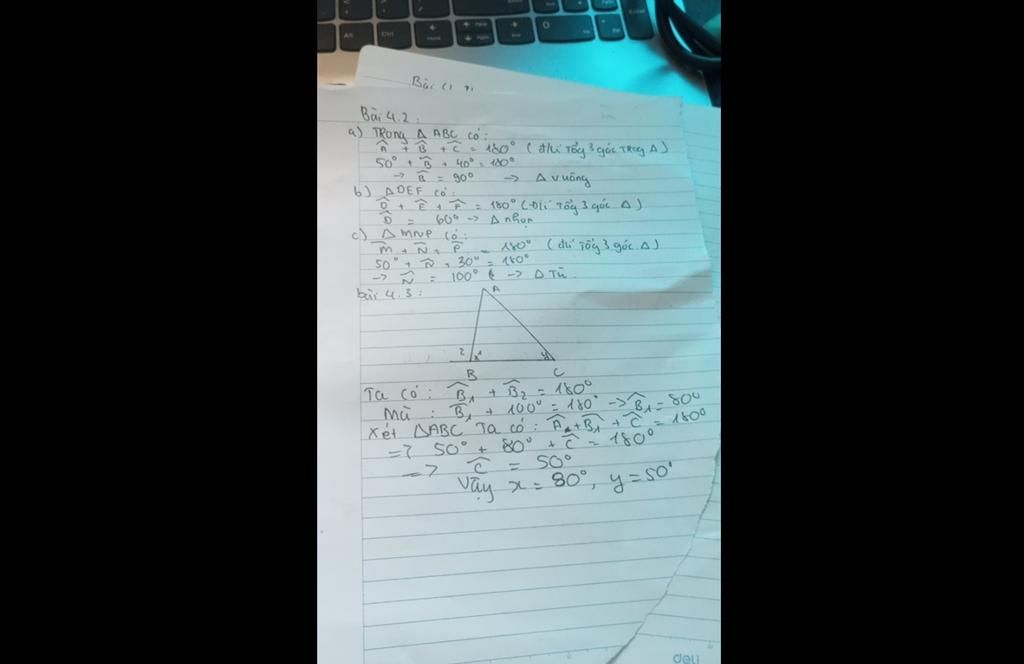 Bài 4.2:
a) Trong Δ ABC có:
Â + B̂ + Ĉ = 180° (đlí tổng 3 góc trong Δ)
50° + B̂ + 40° = 180°
→ B̂ = 90° → Δ vuông
b) Δ DEF có:
D̂ + Ê + F̂ = 180° (Đlí tổng 3 góc Δ)
D̂ = 60° → Δ nhọn
c) Δ MNP có:
M̂ + N̂ + P̂ = 180° (đlí tổng 3 góc Δ)
50° + N̂ + 30° = 180°
→ N̂ = 100° → Δ Tù.
bài 4.3:
A
2
y
B
C
Ta có: B̂₁ + B̂₂ = 180°
Mà: B̂₁ + 100° = 180° → B̂₁ = 80°
Xét ΔABC Ta có: Â + B̂₁ + Ĉ = 180°
=> 50° + 80° + Ĉ = 180°
=> Ĉ = 50°
Vậy x = 80°, y = 50°
Alt
Ctrl
deli